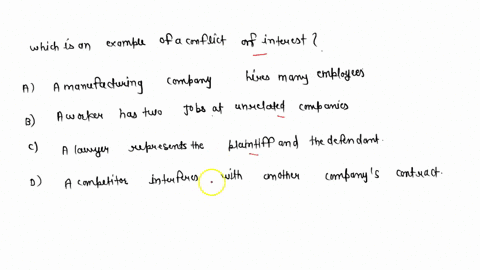 which is an example of a conflict of interest?
A) A manufacturing company hires many employees
B) A worker has two jobs at unrelated companies
C) A lawyer represents the plaintiff and the defendant.
D) A competitor interferes with another company's contract.